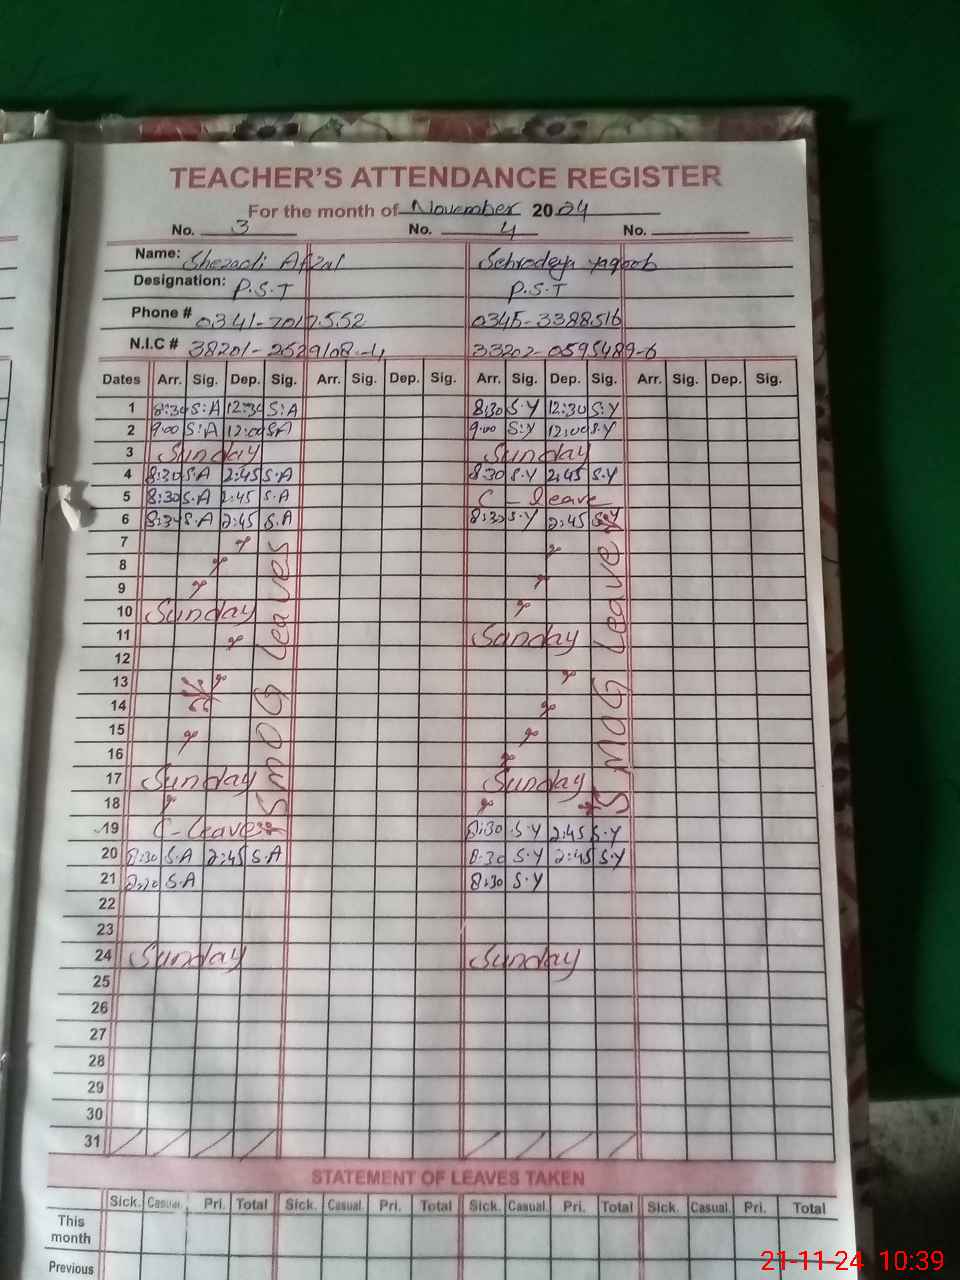 TEACHER'S ATTENDANCE REGISTER
For the month of November 2024
No. 3 No. 4 No.
Name: Shezadi Afzal Sehrodeya yaqoob
Designation: P.S.T P.S.T
Phone # 0345-3388516
N.I.C # 33202-0595489-6
Dates Arr. Sig. Dep. Sig. Arr. Sig. Dep. Sig. Arr. Sig. Dep. Sig. Arr. Sig. Dep. Sig.
1 8:30 S:A 12:30 S:A 8:30 S.Y 12:30 S:Y
2 9:00 S:A 12:00 S.A 9:00 S:Y 12:00 S.Y
3 Sunday Sunday
4 8:30 S.A 2:45 S.A 8:30 S.Y 2:45 S.Y
5 8:30 S.A 2:45 S.A C-leave
6 S.A 2:45 S.A 8:30 S.Y 2:45 S.Y
7
8
9
10 Sunday
11 Sunday
12
13
14
15
16
17 Sunday Sunday
18
SMOG Leaves SMOG Leave
19 C-Leave 8:30 S.Y 2:45 S.Y
20 8:30 S.A 2:45 S.A 8:30 S.Y 2:45 S.Y
21 S.A 8:30 S.Y
22
23
24 Sunday Sunday
25
26
27
28
29
30
31
STATEMENT OF LEAVES TAKEN
Sick. Casual. Pri. Total Sick. Casual. Pri. Total Sick. Casual. Pri. Total Sick. Casual. Pri. Total
This
month
Previous
21-11-24 10:39